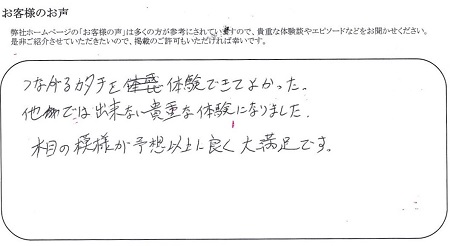 お客様のお声
弊社ホームページの「お客様の声」は多くの方が参考にされていますので、貴重な体験談やエピソードなどをお聞かせください。
是非ご紹介させていただきたいので、掲載のご許可もいただければ幸いです。
つながるカタチを 体験できてよかった。
他では出来ない貴重な体験になりました.
木目の模様が予想以上に良く大満足です。